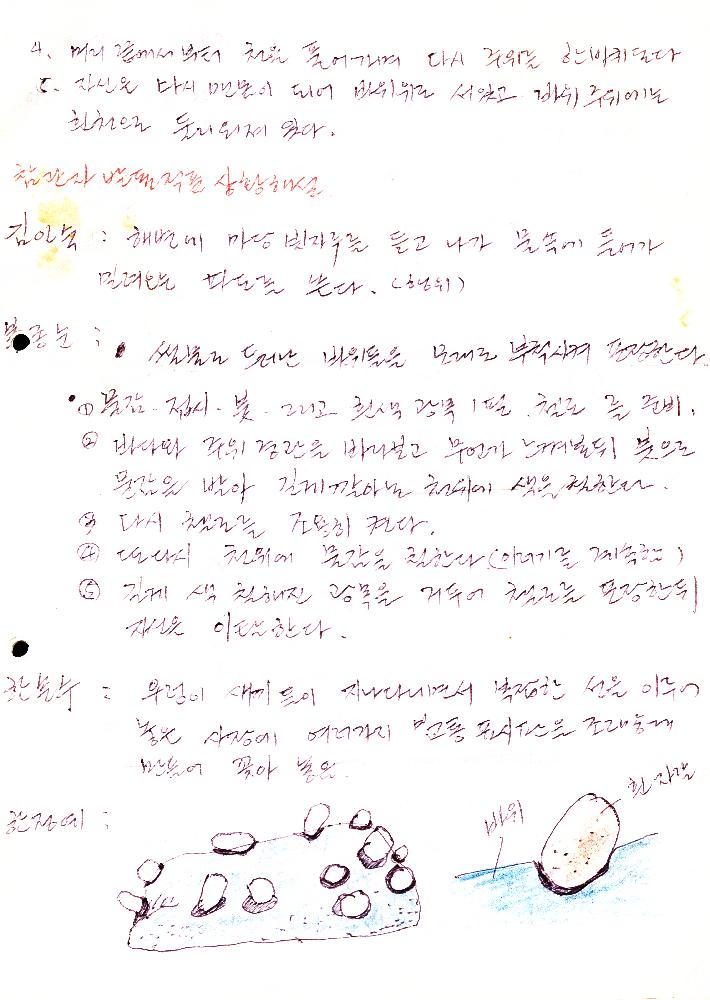 4. 머리 끝에서부터 천을 풀어가며 다시 주위를 한바퀴돈다
5. 자신은 다시 맨몸이 되어 바위위로 서있고 바위주위에는
흰천으로 둘러워져 있다.
참관자 발표작품 상황해설
김인숙 : 해변에 마당 빗자루를 들고 나가 물속에 들어가
밀려오는 파도를 쓴다. (행위)
썰물로 드러난 바위들을 모래로 부착시켜 포장한다.
① 물감·접시·붓·그리고 흰색 광목 1필, 첼로 를 준비.
② 바다와 주위 경관을 바라보고 무언가 느껴본뒤 붓으로
물감을 발라 길게깔아논 천위에 색을 칠한다.
③ 다시 첼로를 조용히 켠다.
④ 또다시 천위에 물감을 칠한다 (이러기를 계속함)
⑤ 길게 색 칠해진 광목을 거두어 첼로를 포장한뒤
자신은 이탈한다.
: 우렁이 새끼들이 지나다니면서 복잡한 선을 이루어
놓은 사장에 여러가지 교통표시판을 조그맣게
만들어 꽂아 놓음.
한정예 :
바위
흰 자갈